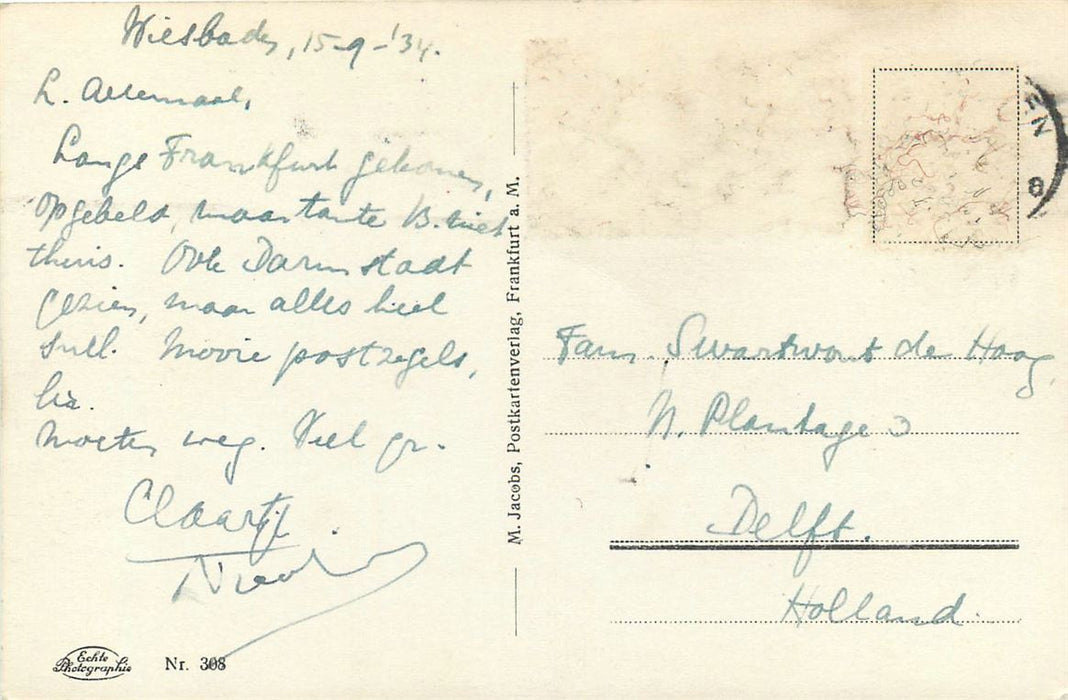 Wiesbaden, 15-9-'34.
L. Allemaal,
Langs Frankfurt gekomen,
opgebeld, maar tante B. niet
thuis. Ook Darmstadt
gezien, maar alles heel
snel. Mooie postzegels,
hè.
Moeten weg. Veel gr.
Claartje
M. Jacobs, Postkartenverlag, Frankfurt a. M.
Echte
Photographie
Nr. 308
EN
8
Fam. Swartwout de Hoog,
N. Plantage 3
Delft.
Holland.